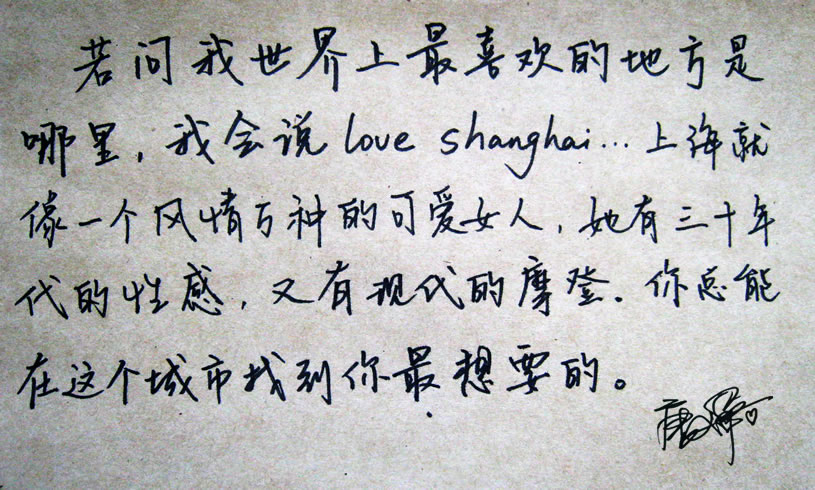 若问我世界上最喜欢的地方是
哪里，我会说 love shanghai... 上海就
像一个风情万种的可爱女人，她有三十年
代的性感，又有现代的摩登。你总能
在这个城市找到你最想要的。